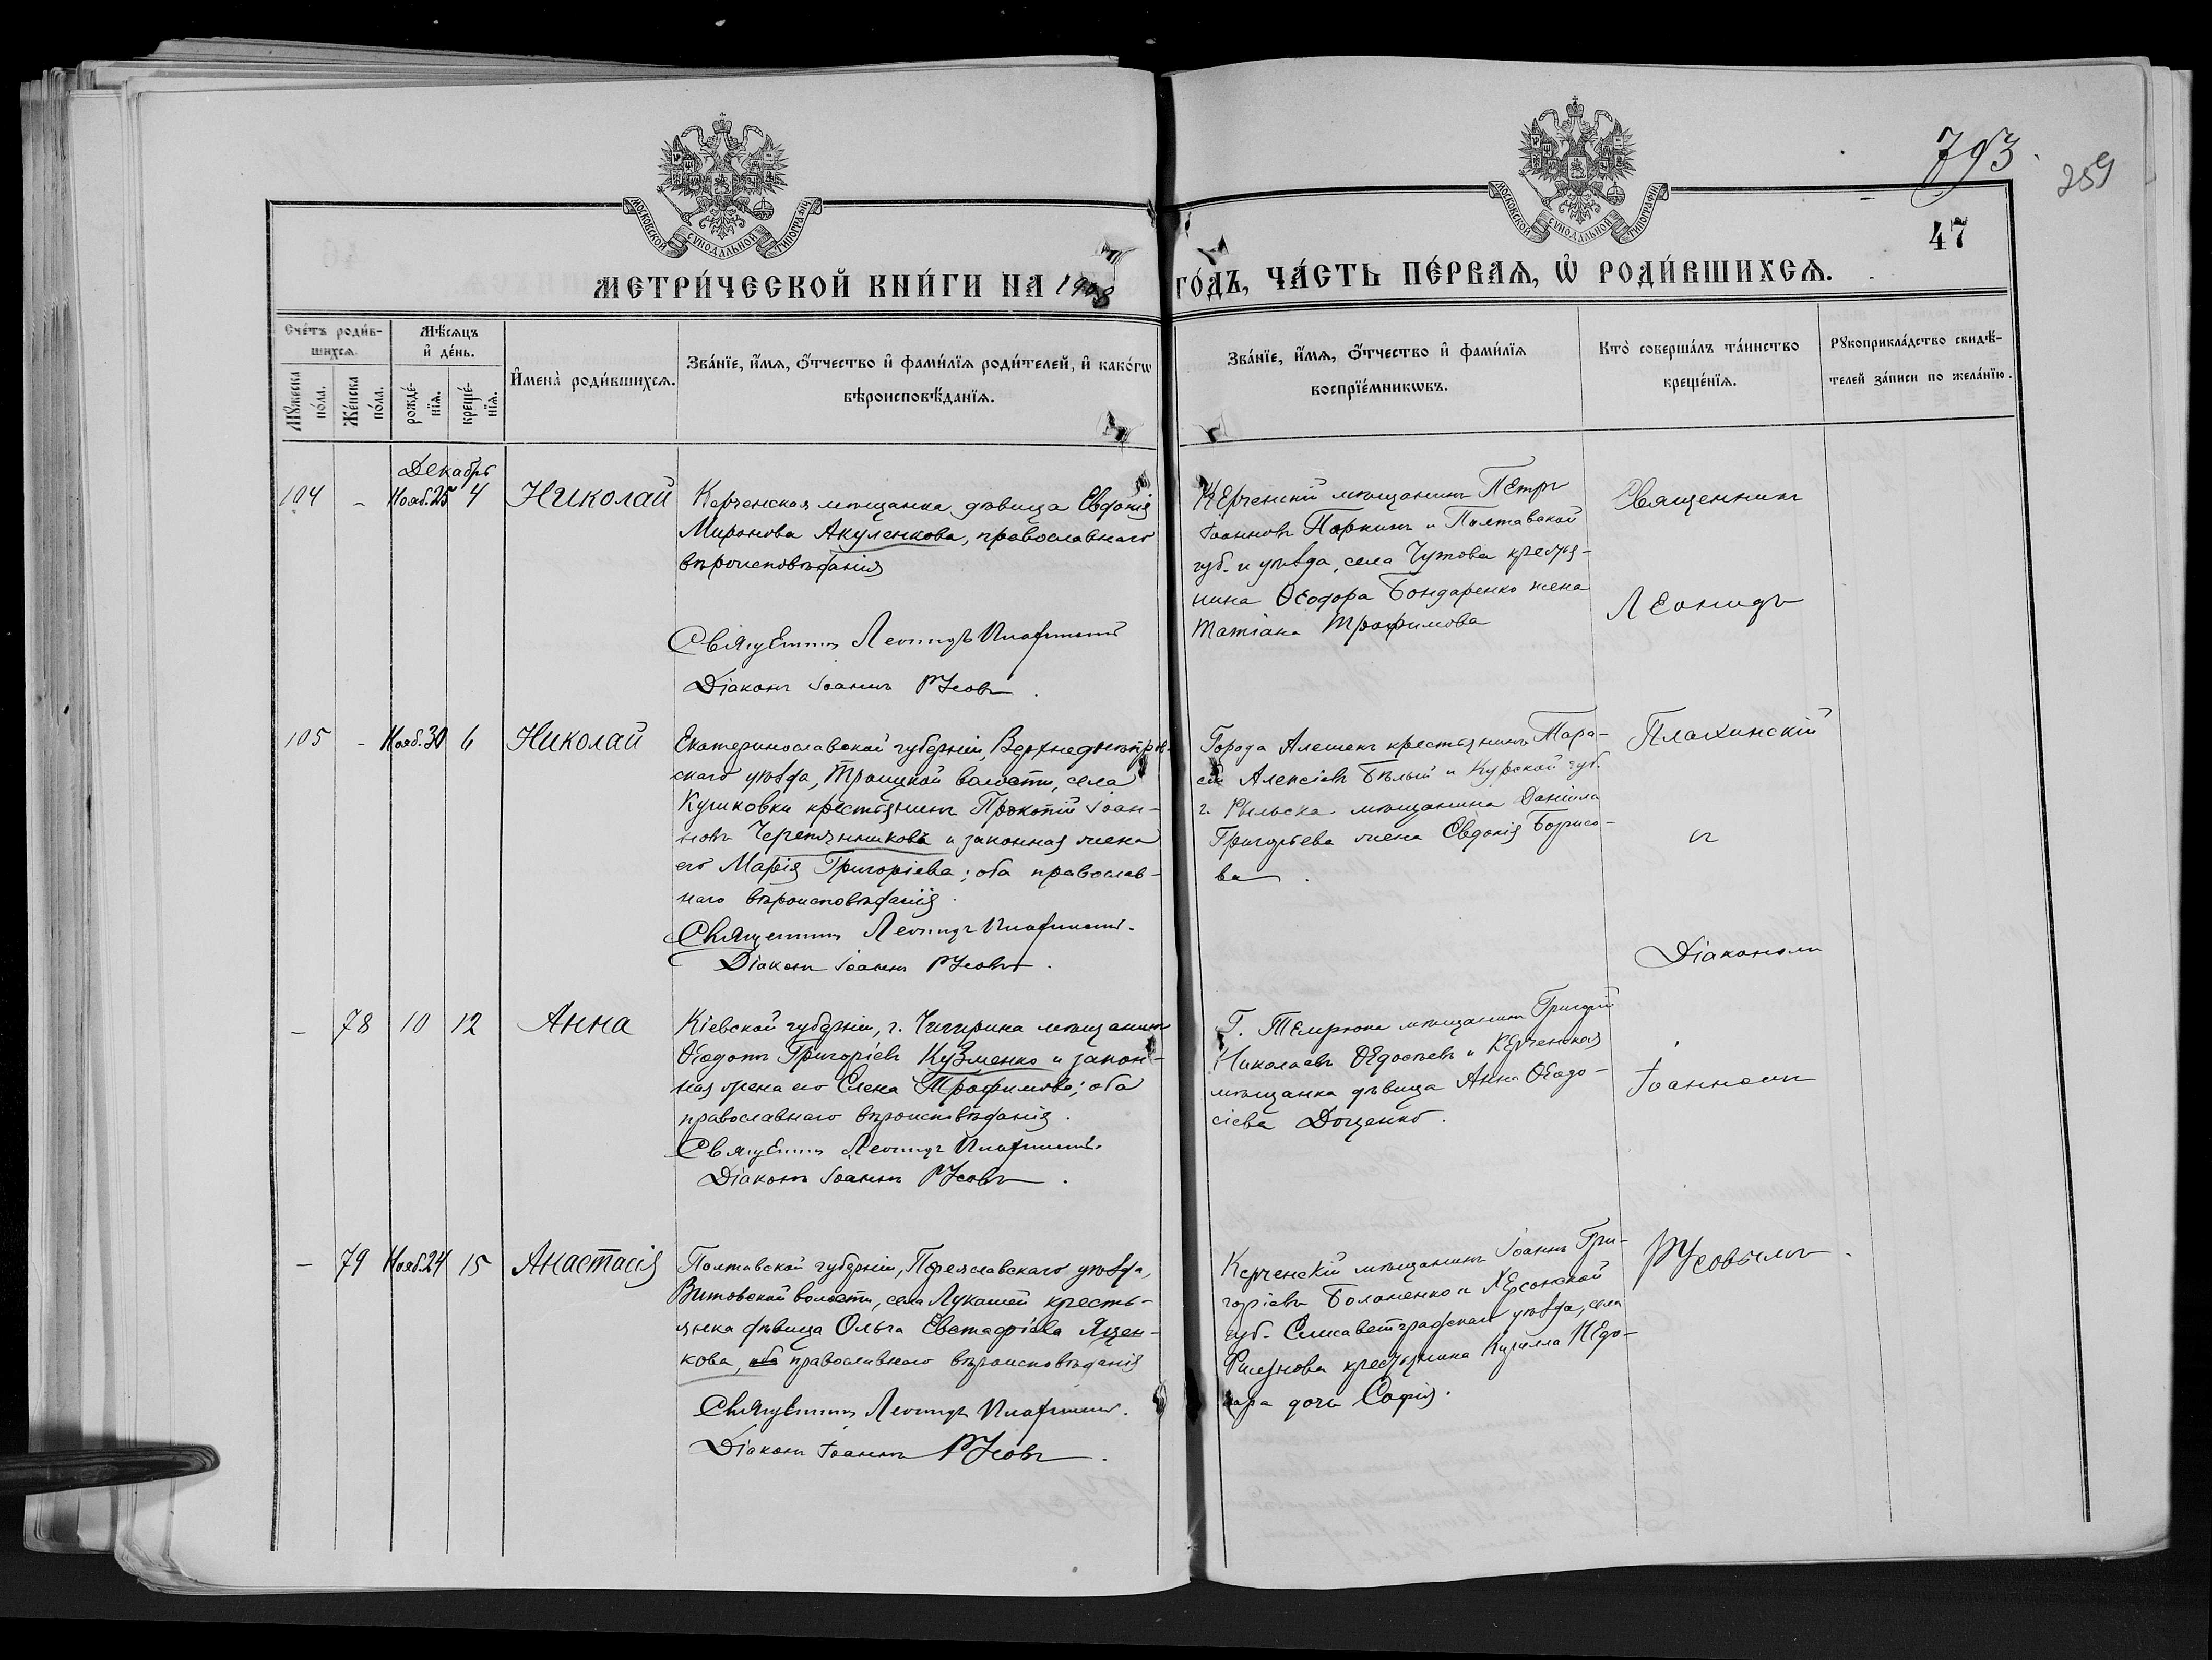 793.
259
47
МОСКОВСКОЙ СУНОДАЛЬНОЙ ТИПОГРАФІИ
МОСКОВСКОЙ СУНОДАЛЬНОЙ ТИПОГРАФІИ
МЕТРИ́ЧЕСКОЙ КНИ́ГИ НА 1908 ГО́ДЪ, ЧА́СТЬ ПЕ́РВАЯ, Ѡ҆ РОДИ́ВШИХСЯ.
Сче́тъ роди́в-
шихся.
Мꙋжеска по́ла.
Же́нска по́ла.
Мѣ́сяцъ
и҆ де́нь.
рожде́-
нїя.
креще́-
нїя.
И҆мена̀ роди́вшихся.
Зва́нїе, и҆́мя, ѻ҆́тчество и҆ фами́лїя роди́телей, и҆ како́гѡ
вѣроисповѣ́данїя.
Зва́нїе, и҆́мя, ѻ҆́тчество и҆ фами́лїя
воспрїе́мникѡвъ.
Кто̀ соверша́лъ та́инство
креще́нїя.
Рꙋкоприкла́дство свидѣ́-
телей за́писи по жела́нїю.
Декабрь
104 - Нояб. 25 4 Николай
Керченская мѣщанка дѣвица Евдокія
Миронова Акуленкова, православнаго
вѣроисповѣданія
Священникъ Леонидъ Плахинскій
Діаконъ Іоаннъ Русовъ.
Керченскій мѣщанинъ Петръ
Іоанновъ Паркинъ и Полтавской
губ. и уѣзда, села Чутова крестья-
нина Ѳеодора Бондаренко жена
Татіана Трофимова
Священникъ
Леонидъ
105 - Нояб. 30 6 Николай
Екатеринославской губерніи, Верхнеднѣпров-
скаго уѣзда, Троицкой волости, села
Кушковки крестьянинъ Прокопій Іоан-
новъ Черепянниковъ и законная жена
его Марія Григоріева; оба православ-
наго вѣроисповѣданія.
Священникъ Леонидъ Плахинскій.
Діаконъ Іоаннъ Русовъ.
Города Алешекъ крестьянинъ Тара-
сій Алексіевъ Бѣлый и Курской губ.
г. Рыльска мѣщанина Даніила
Григорьева жена Евдокія Борисо-
ва.
Плахинскій
съ
Діакономъ
- 78 10 12 Анна
Кіевской губерніи, г. Чигирина мѣщанинъ
Ѳеодотъ Григоріевъ Кузменко и закон-
ная жена его Елена Трофимова; оба
православнаго вѣроисповѣданія.
Священникъ Леонидъ Плахинскій.
Діаконъ Іоаннъ Русовъ.
Г. Темрюка мѣщанинъ Григорій
Николаевъ Ѳедосѣевъ и Керченская
мѣщанка дѣвица Анна Ѳеодо-
сіева Доценко.
Іоанномъ
- 79 Нояб. 24 15 Анастасія
Полтавской губерніи, Переяславскаго уѣзда,
Витовской волости, села Лукашей кресть-
янка дѣвица Ольга Евстафіева Яцен-
кова, оба православнаго вѣроисповѣданія
Священникъ Леонидъ Плахинскій.
Діаконъ Іоаннъ Русовъ.
Керченскій мѣщанинъ Іоаннъ Гри-
горіевъ Болоненко и Херсонской
губ. Елисаветградскаго уѣзда, села
крестьянина Кирилла
дочь Софія.
Русовымъ.